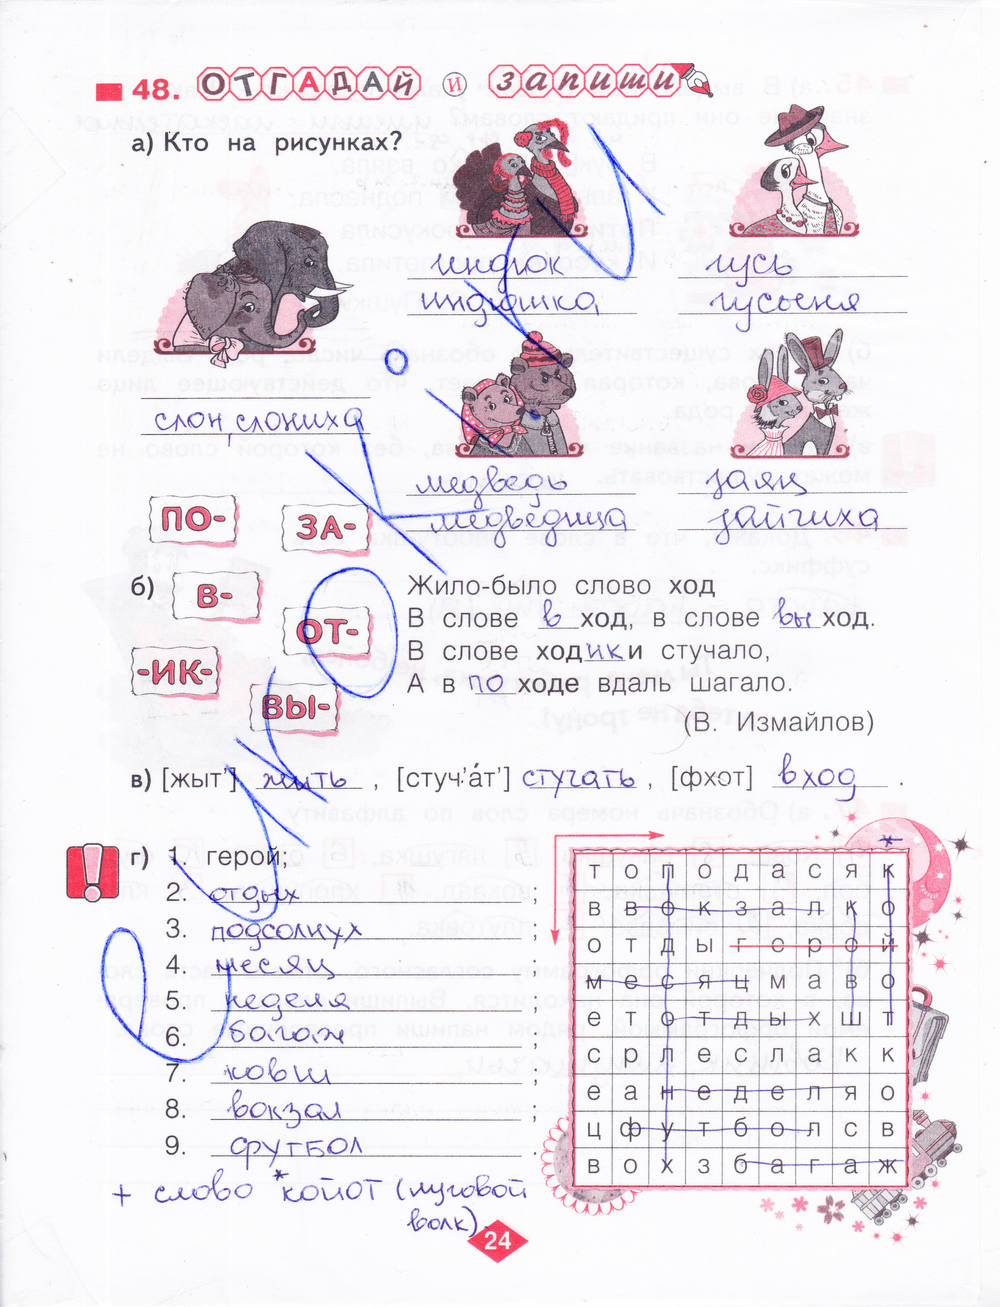 48. ОТГАДАЙ И ЗАПИШИ
а) Кто на рисунках?
индюк гусь
индюшка гусыня
слон, слониха
медведь заяц
медведица зайчиха
ПО- ЗА-
В- ОТ-
-ИК- ВЫ-
б) Жило-было слово ход
В слове в ход, в слове вы ход.
В слове ходик и стучало,
А в по ходе вдаль шагало.
(В. Измайлов)
в) [жыт’] жить, [стуч’а́т’] стучать, [фхот] вход.
г) 1. герой;
2. отдых;
3. подсолнух;
4. месяц;
5. неделя;
6. багаж;
7. ковш;
8. вокзал;
9. футбол.
+ слово *койот (луговой
волк)
*
т о п о д а с я к
в в о к з а л к о
о т д ы г е р о й
м е с я ц м а в о
е т о т д ы х ш т
с о л е с л а к к
е а н е д е л я о
ц ф у т б о л с в
в о х з б а г а ж
24